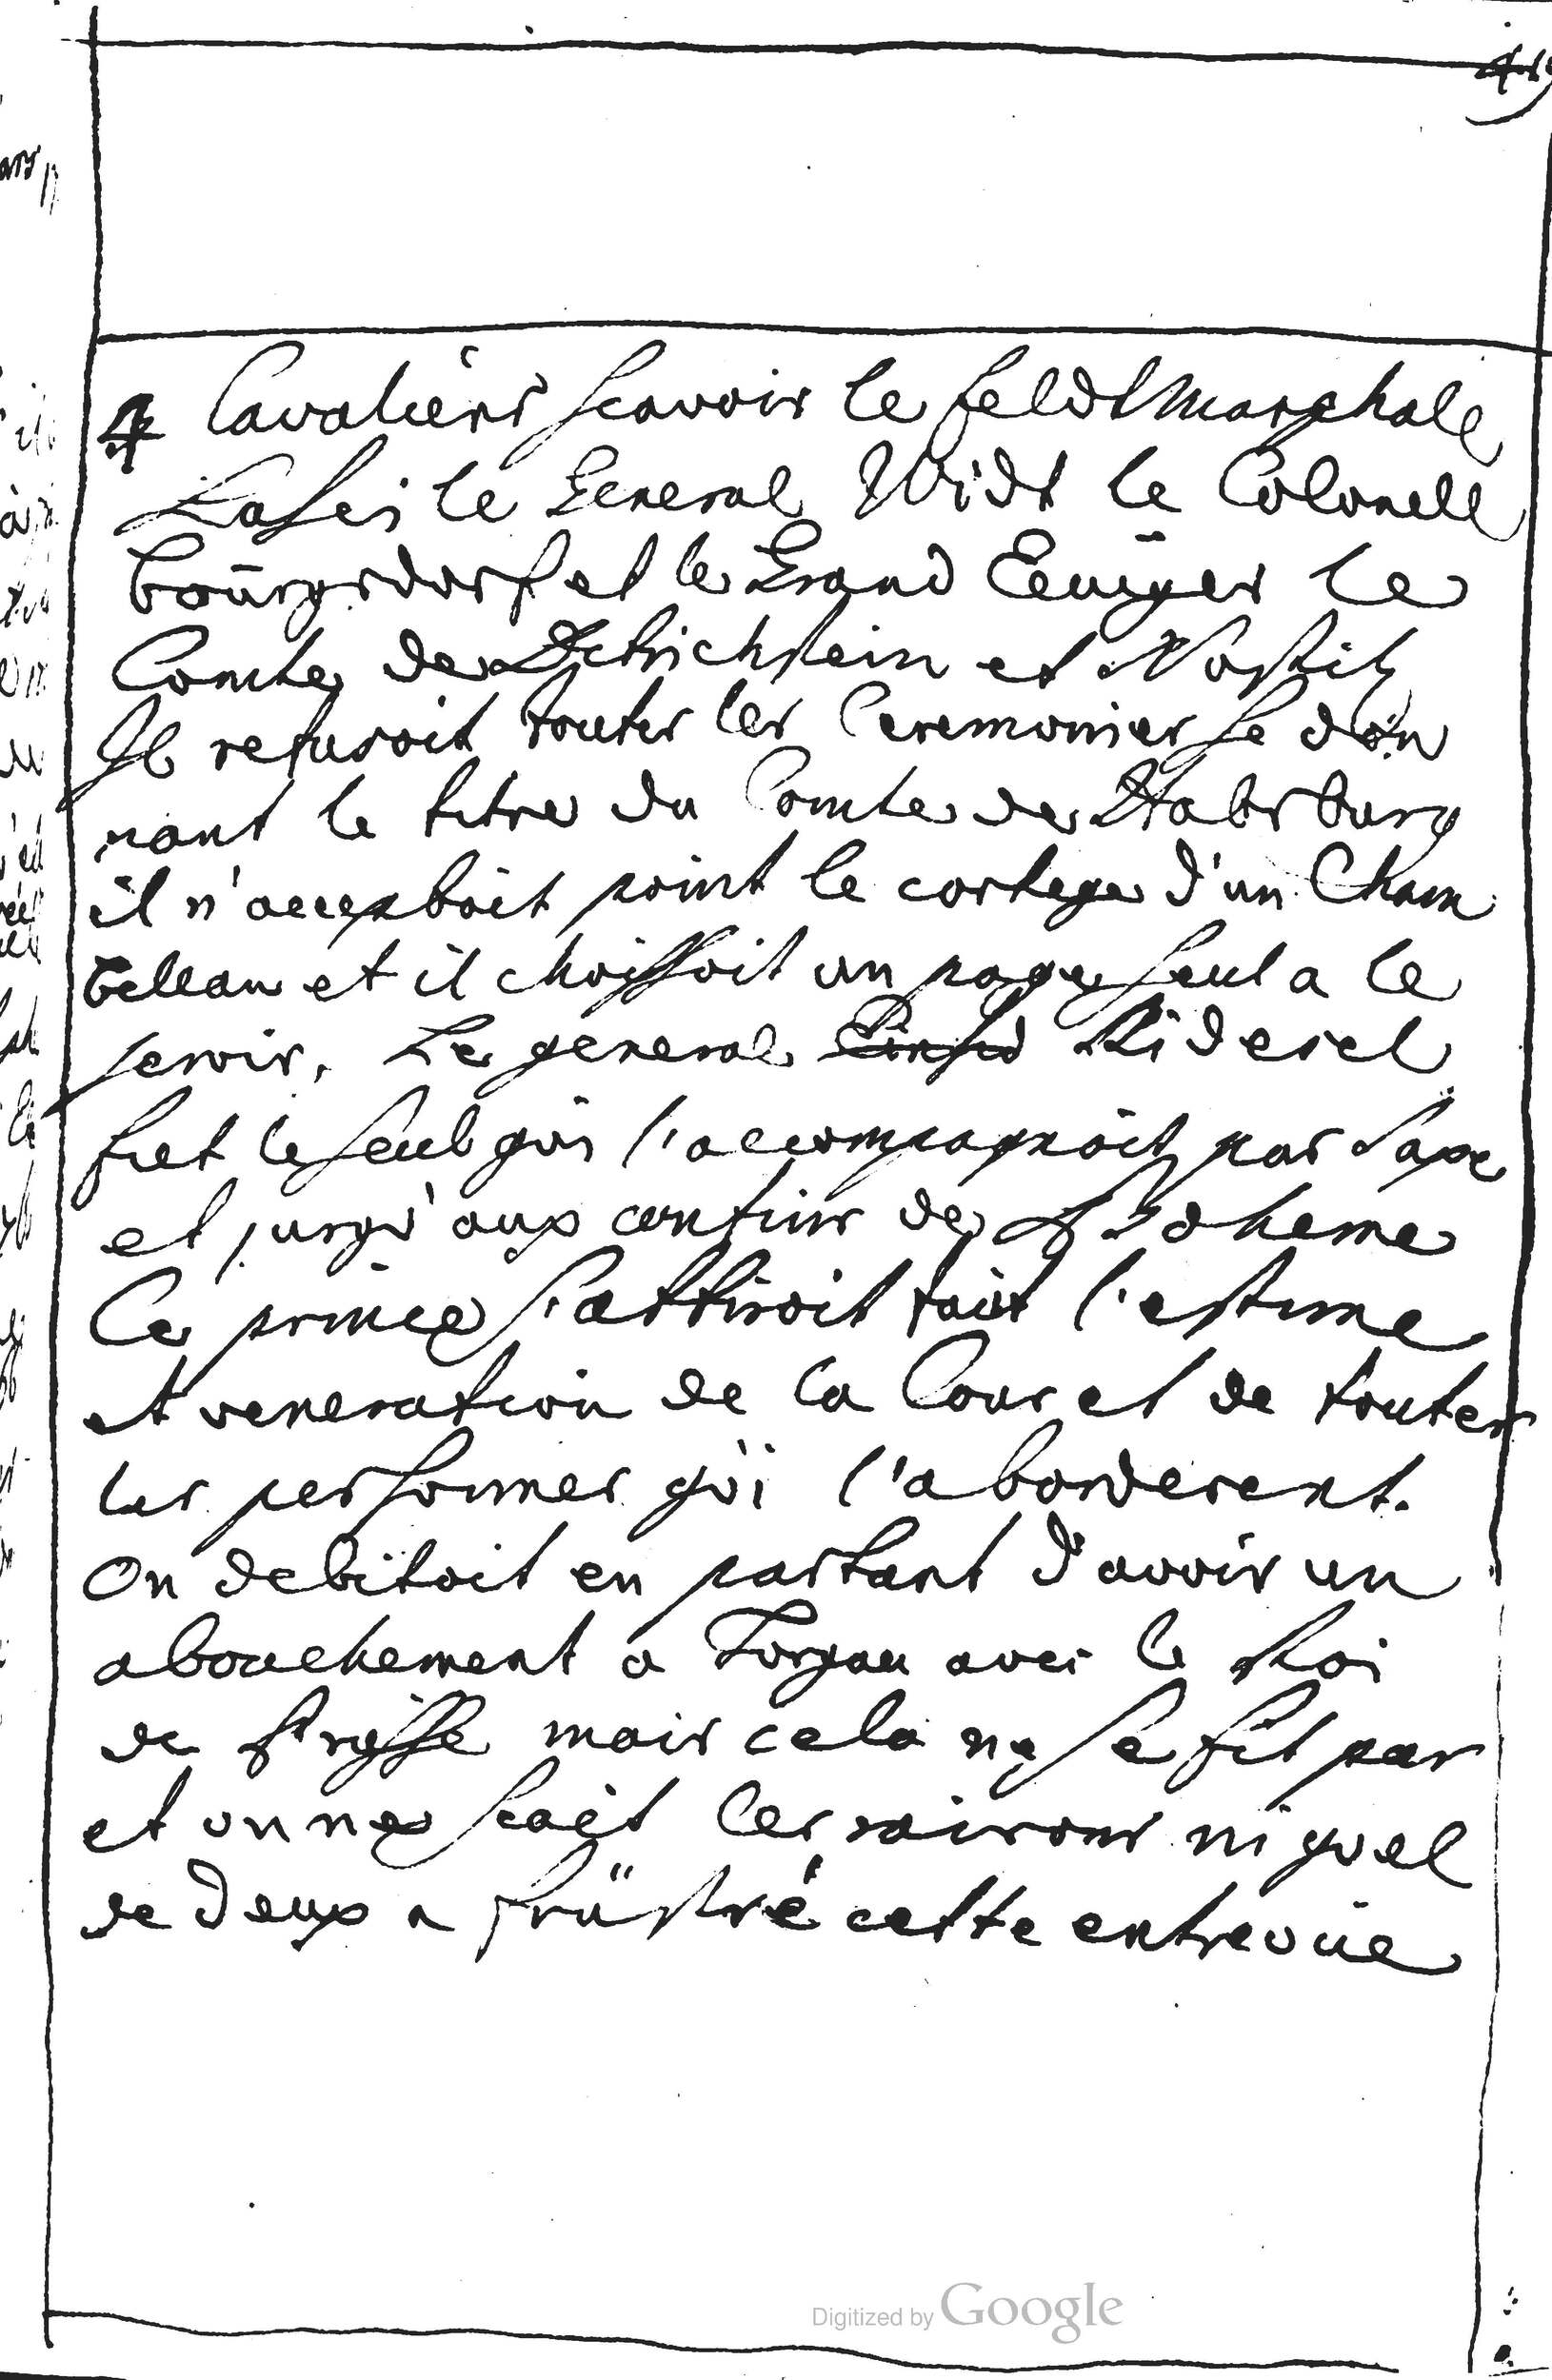 4 Cavaliers scavoir le feldtmarchale
Lasci le General Widt le Colonell
bourgsdorf et le Grand Ecuyer le
Comte de Ditrichstein et Nostitz
Il refusoit toutes les Ceremonies se don
nant le titre du Comte de Habsburg
il n'acceptoit point le cortege d'un Cham
bellan et il choissoit un page seul a le
servir. Le general Ridesel
fut le seul qui l'accompagnoit par Saxe
et jusqu'aux confins de Boheme
Ce prince s'attiroit tout l'estime
et veneration de la Cour et de toutes
les personnes qui l'aborderent.
On debitoit en partant d'avoir un
abouchement a Torgau avec le Roi
de Prusse mais cela ne se fit pas
et on ne scait les raisons ni quel
de deux a früstré cette entrevüe
Digitized by Google